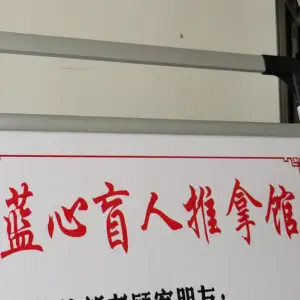 蓝心盲人推拿馆
新老顾客朋友：